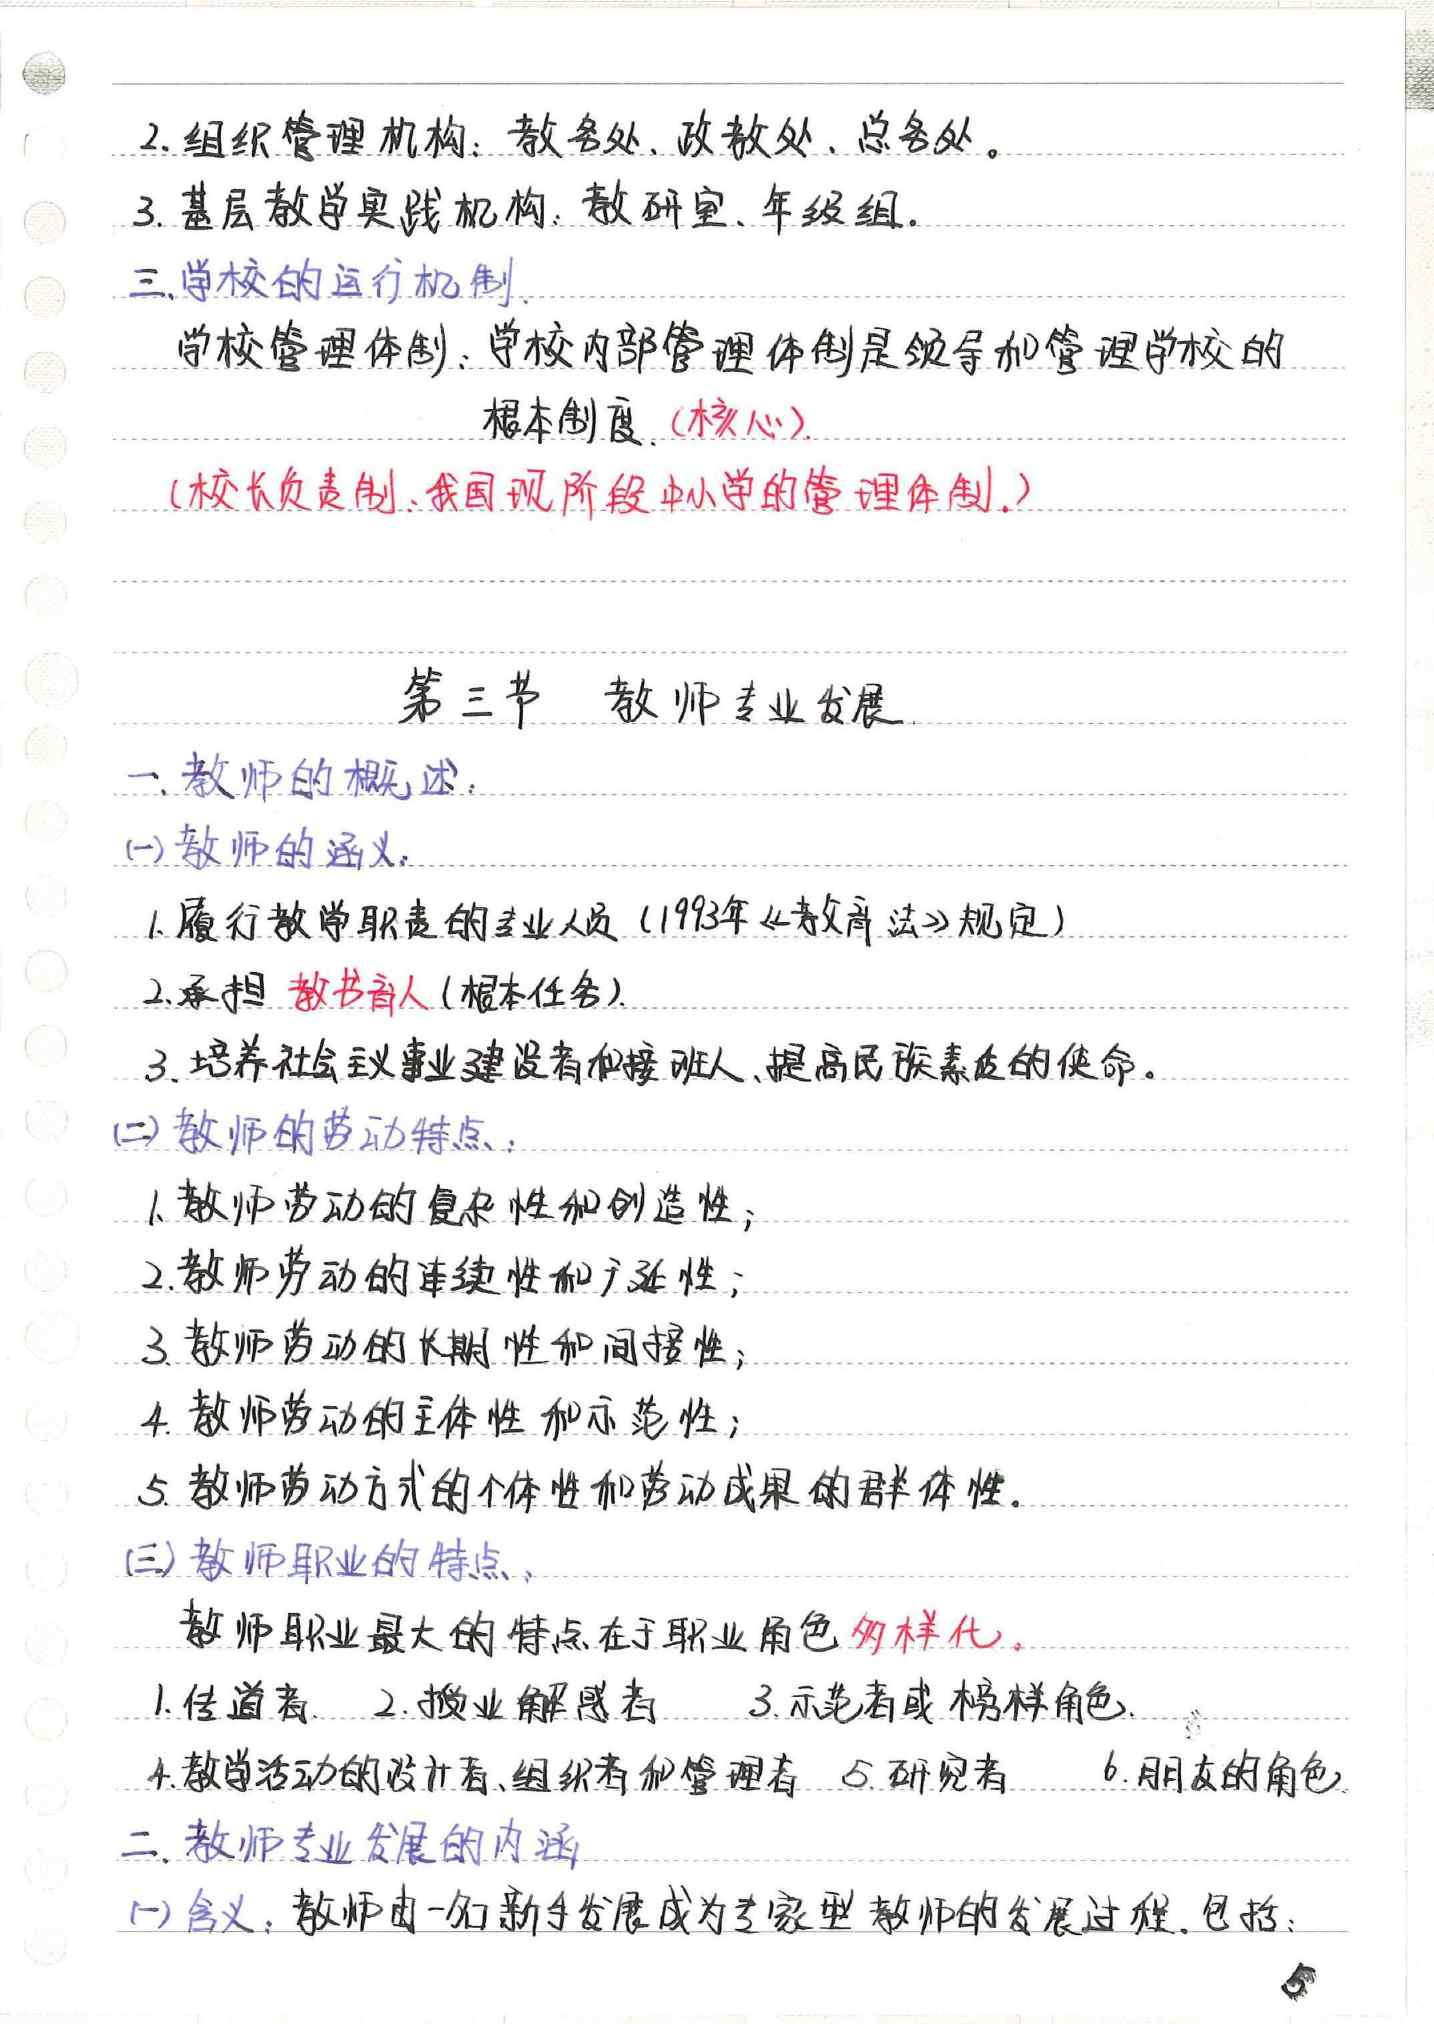 2.组织管理机构：教务处、政教处、总务处。
3.基层教学实践机构：教研室、年级组.
三.学校的运行机制.
学校管理体制：学校内部管理体制是领导和管理学校的
根本制度.（核心）.
（校长负责制：我国现阶段中小学的管理体制.）
第三节 教师专业发展.
一.教师的概述：
(一)教师的涵义：
1.履行教学职责的专业人员（1993年《教育法》规定）
2.承担 教书育人（根本任务）.
3.培养社会主义事业建设者和接班人、提高民族素质的使命。
(二)教师的劳动特点：
1.教师劳动的复杂性和创造性；
2.教师劳动的连续性和广延性；
3.教师劳动的长期性和间接性；
4.教师劳动的主体性和示范性；
5.教师劳动方式的个体性和劳动成果的群体性.
(三)教师职业的特点：
教师职业最大的特点在于职业角色多样化。
1.传道者. 2.授业解惑者 3.示范者或榜样角色.
4.教学活动的设计者、组织者和管理者 5.研究者 6.朋友的角色.
二.教师专业发展的内涵
(一)含义：教师由一名新手发展成为专家型教师的发展过程.包括：
5